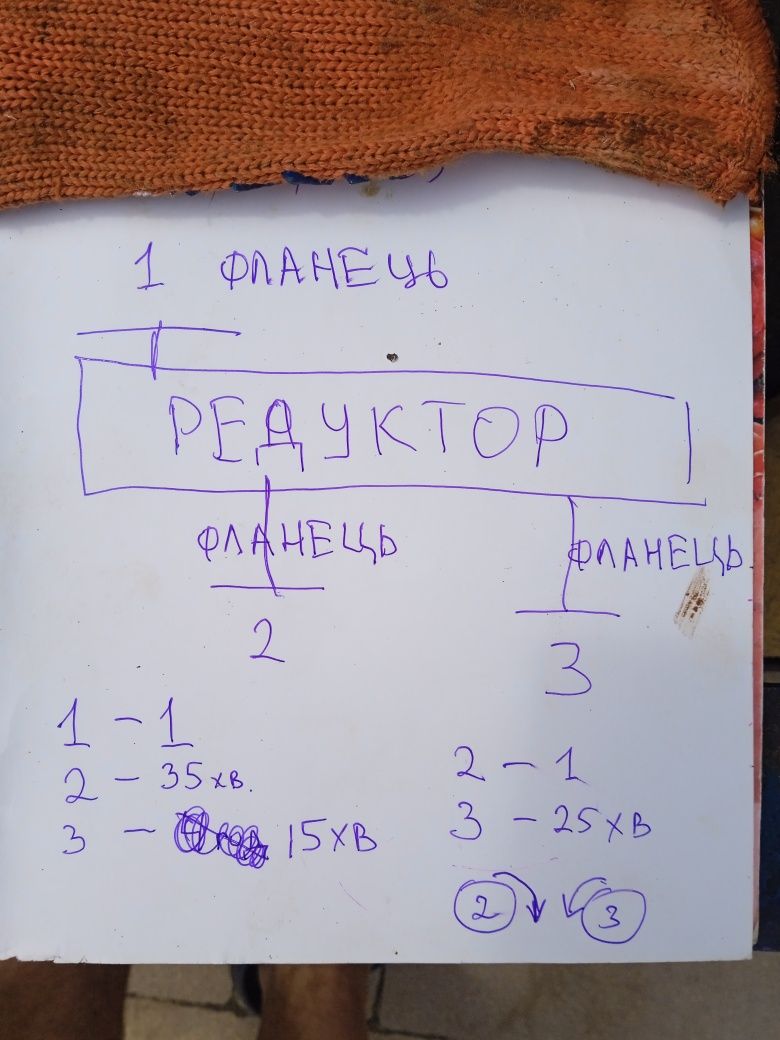 1 ФЛАНЕЦЬ
РЕДУКТОР
ФЛАНЕЦЬ
ФЛАНЕЦЬ
2
3
1 - 1
2 - 35 хв.
3 - 15 ХВ
2 - 1
3 - 25 ХВ
2 3